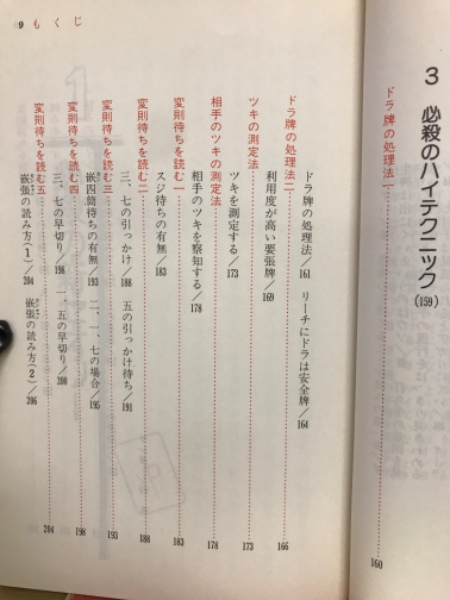 3 必殺のハイテクニック(159)
ドラ牌の処理法一 160
ドラ牌の処理法/161 リーチにドラは安全牌/164
ドラ牌の処理法二 166
利用度が高い要張牌/169
ツキの測定法 173
ツキを測定する/173
相手のツキの測定法 178
相手のツキを察知する/178
変則待ちを読む一 183
スジ待ちの有無/183
変則待ちを読む二 188
三、七の引っかけ/188 五の引っかけ待ち/191
変則待ちを読む三 193
嵌四筒待ちの有無/193 二、一、七の場合/195
変則待ちを読む四 198
三、七の早切り/198 一、五の早切り/200
変則待ちを読む五 204
嵌張の読み方(1)/204 嵌張の読み方(2)/206
9 もくじ